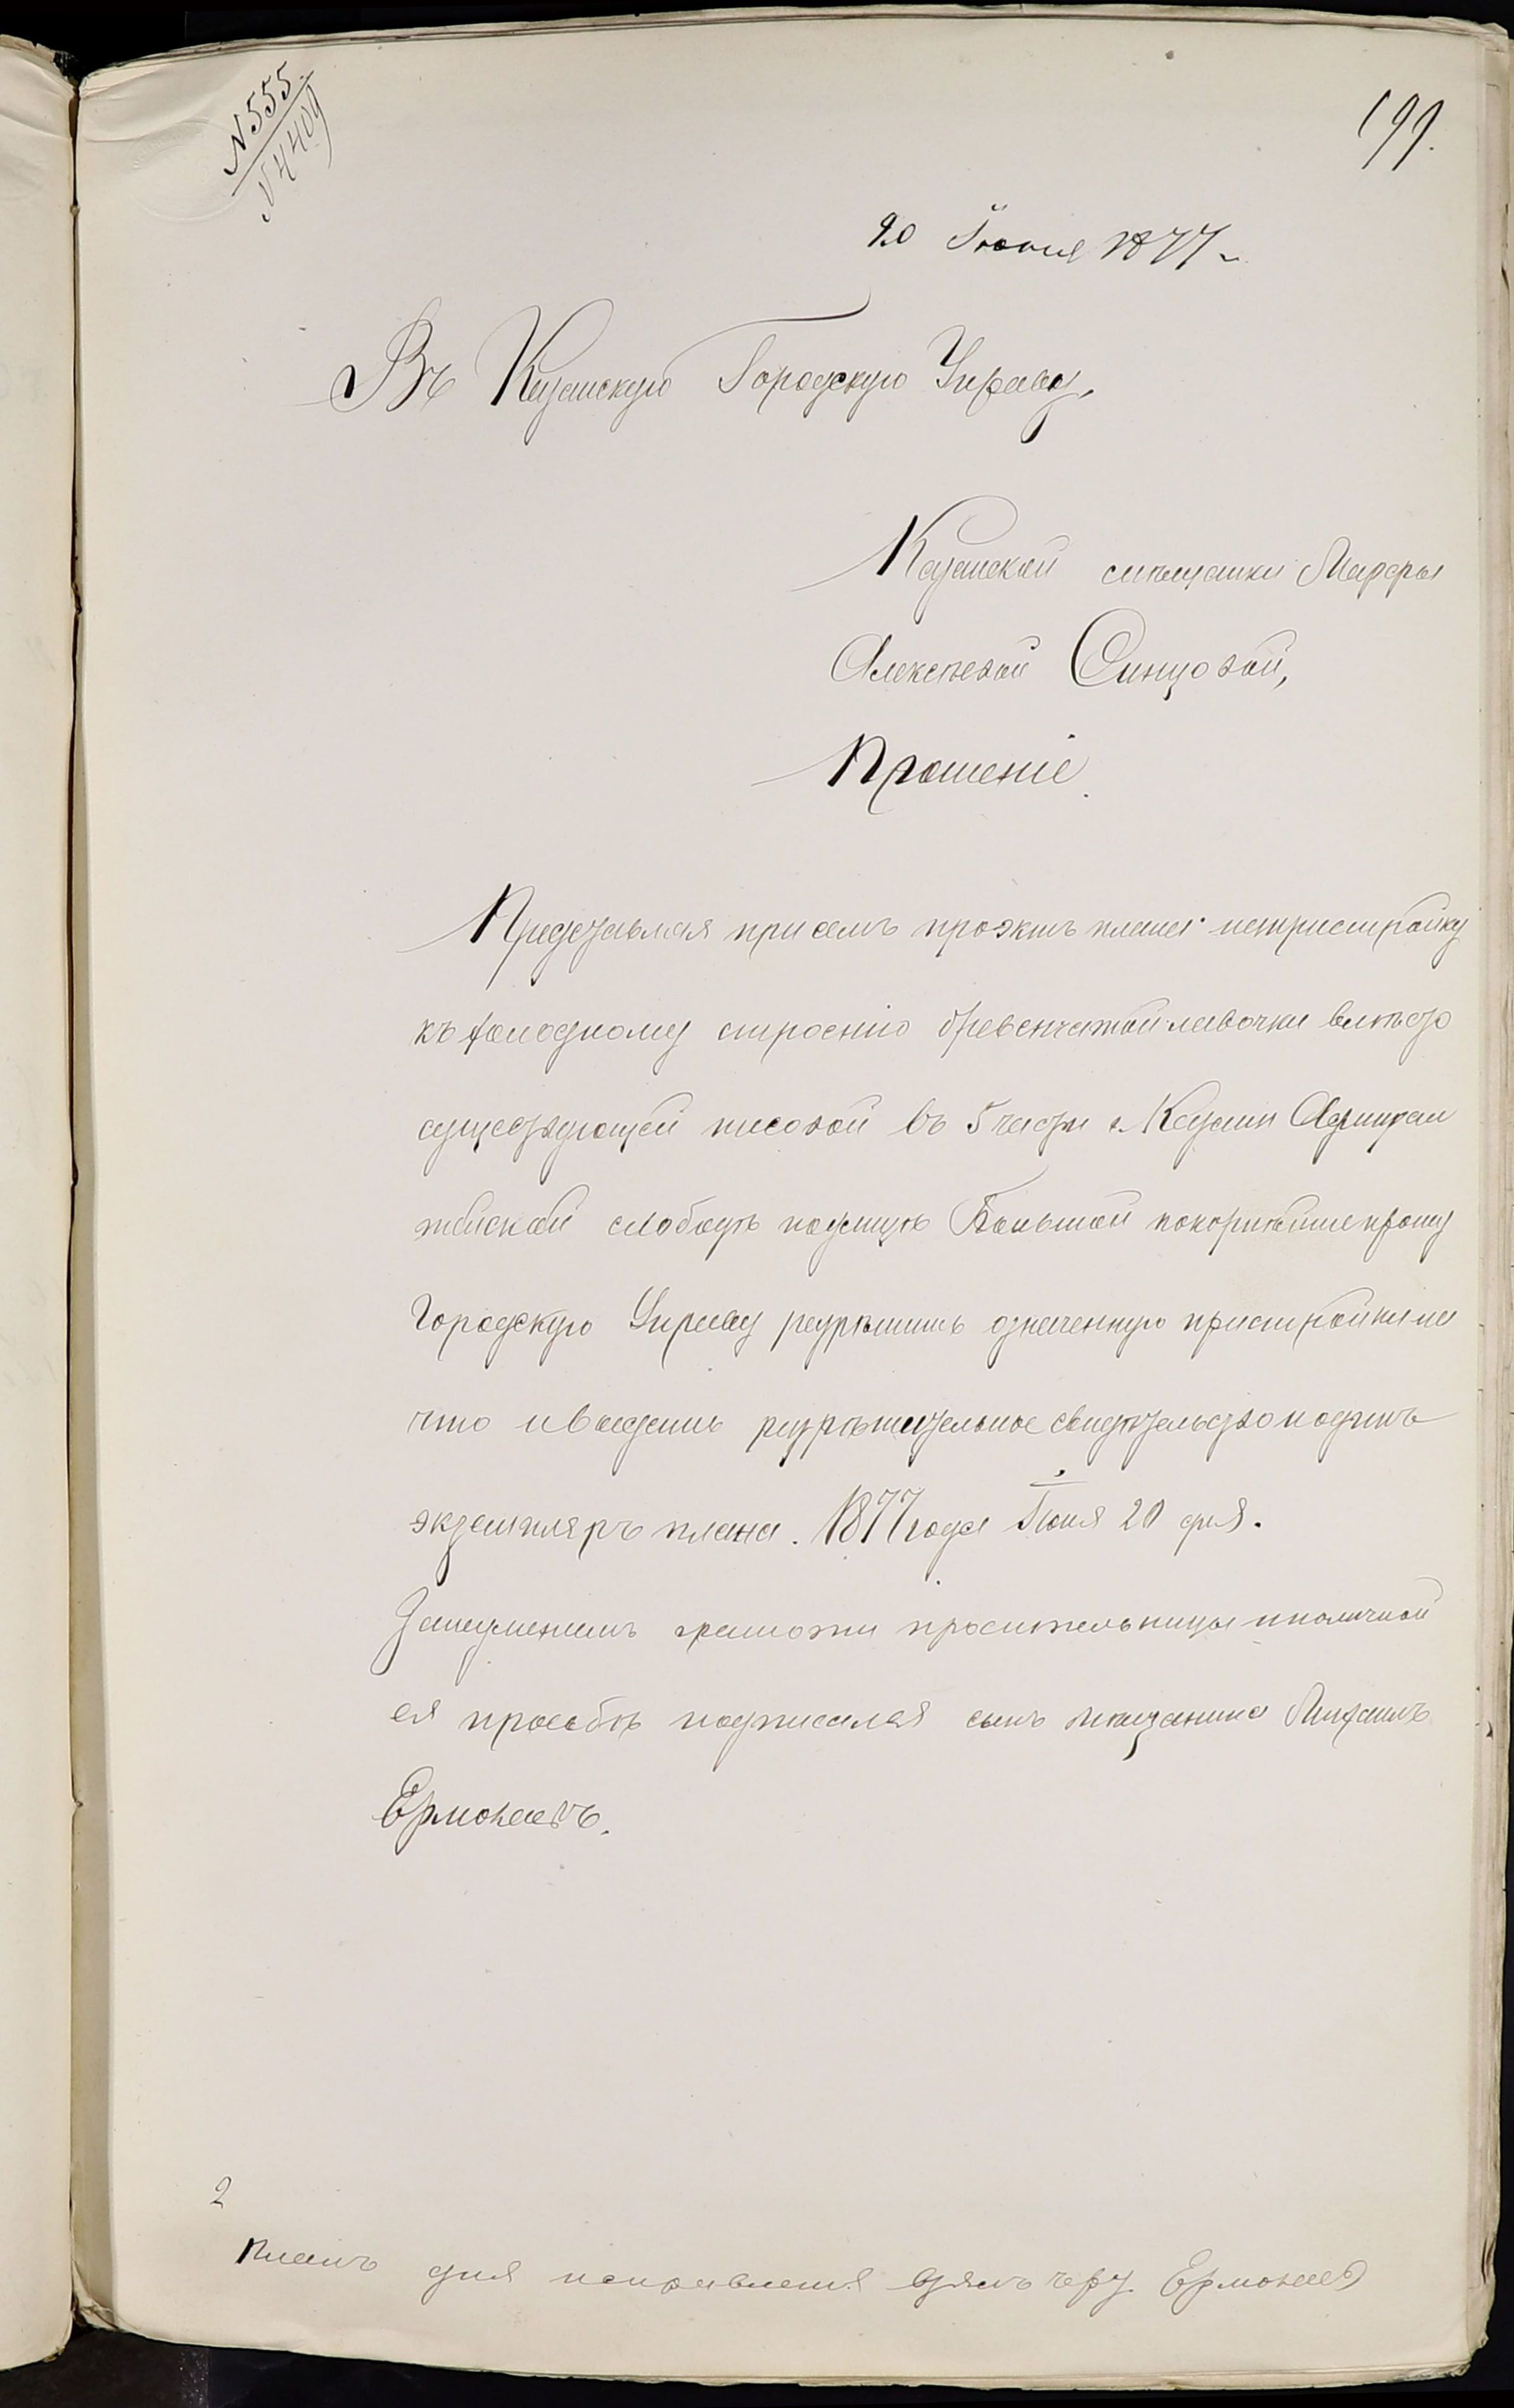 N 555.
N 4409
199.
20 Іюня 1877 г.
Въ Казанскую Городскую Управу,
Казанской мѣщанки Марфы
Алексѣевой Синцовой,
Прошеніе.
Представляя при семъ проэктъ плана на пристройку
къ холодному строенію бревенчатой лавочки вмѣсто
существующей тесовой въ 5 части г. Казани Адмирал
тейской слободѣ по улицѣ Большой покорнѣйше прошу
Городскую Управу разрѣшить означенную пристройку на
что и выдать разрѣшительное свидѣтельство и одинъ
экземпляръ плана. 1877 года Іюня 20 дня.
За неуменіемъ грамоты просительницы и по личной
ея просьбѣ подписался сынъ мѣщанина Михаилъ
Ермолаевъ.
2
Планъ для исправления взялъ Ермолаев